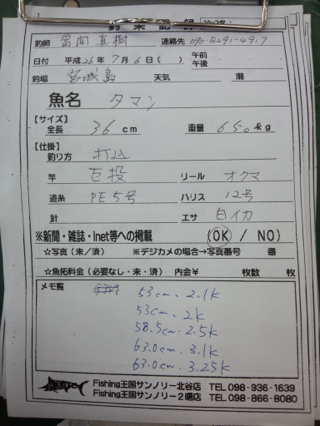 釣果記録
釣師 當間真樹 連絡先 090-8291-4917
日付 平成26年7月6日( ) 午前 午後
釣場 宮城島 天気 潮
魚名 タマン
【サイズ】
全長 36cm 重量 650kg
【仕掛】
釣り方 打込
竿 巨投 リール オクマ
道糸 PE5号 ハリス 12号
針 エサ 白イカ
※新聞・雑誌・Inet等への掲載 (OK / NO)
☆写真(未/済) ※デジカメの場合→写真番号 番
☆魚拓料金(必要なし・未・済) 内金¥ 枚数 枚
メモ覧
53cm、2.1k
53cm、2k
58.5cm、2.5k
63.0cm、3.1k
63.0cm、3.25k
Fishing王国サンノリー北谷店 TEL 098-936-1639
Fishing王国サンノリー2曙店 TEL 098-866-8080